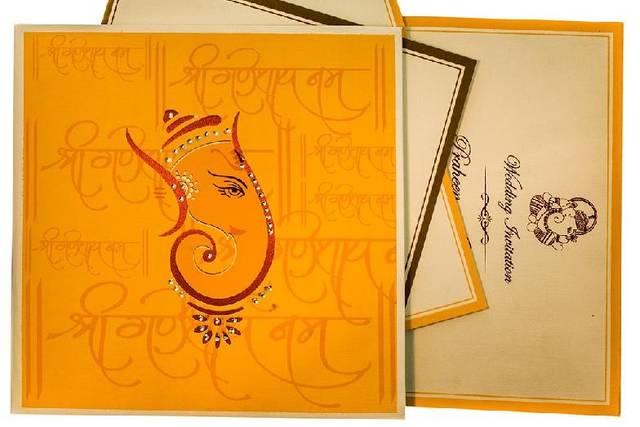 श्री गणेशाय नम
श्री गणेशाय नम
श्री गणे
श्री गणेशाय नम
श्री गणेशाय नम
श्री गणेशाय नम
गणेशाय नम
श्री गणेशाय नम
Wedding Invitation
Praheen